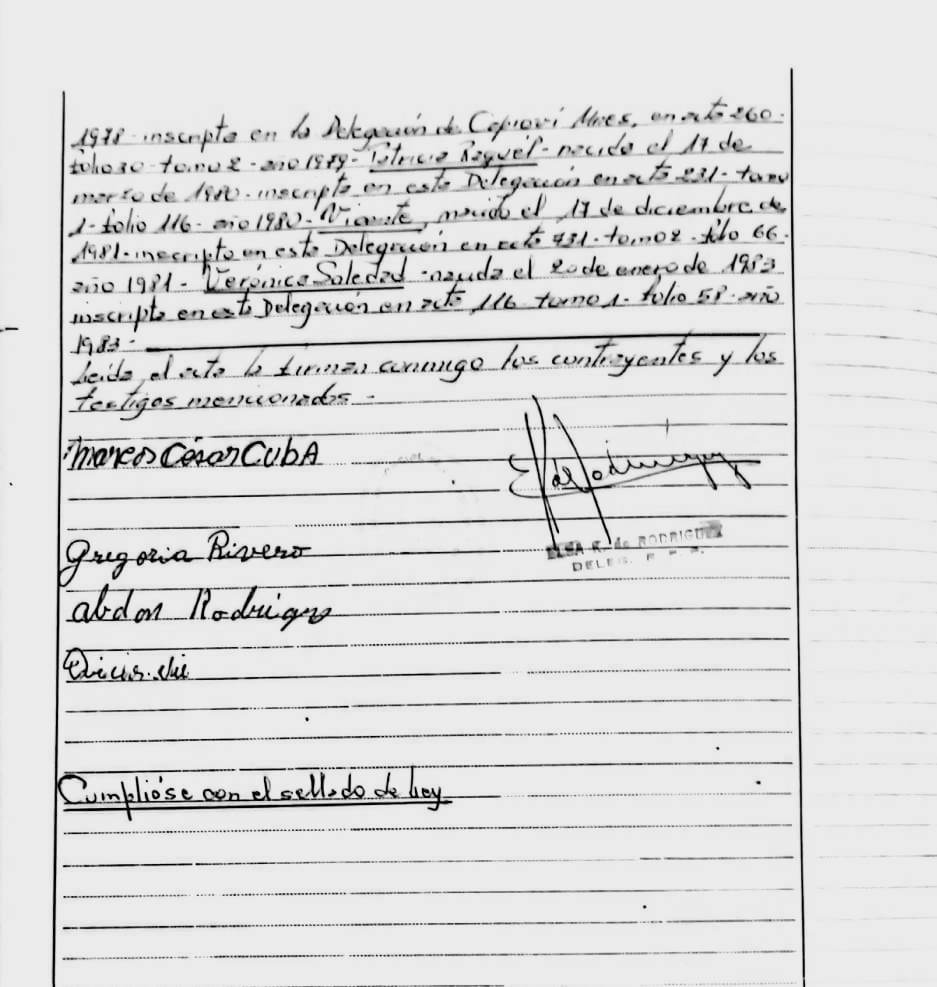 1978-inscripta en la Delegación de Capioví Mnes, en acta 260-
folio 30-tomo 2-año 1979- Patricia Raquel- nacida el 17 de
marzo de 1980-inscripta en esta Delegación en acta 231-tomo
1-folio 116-año 1980- Vicente, nacido el 17 de diciembre de
1981-inscripto en esta Delegación en acta 731-tomo 2-folio 66-
año 1981- Verónica Soledad -nacida el 20 de enero de 1983
inscripta en esta Delegación en acta 116-tomo 1-folio 58-año
1983-
Leída el acta la firman conmigo los contrayentes y los
testigos mencionados-
Marcos César Cuba
E de Rodriguez
ELSA R. de RODRIGUEZ
DELEG.
Gregoria Rivero
abdon Rodriguez
Cumplióse con el sellado de ley